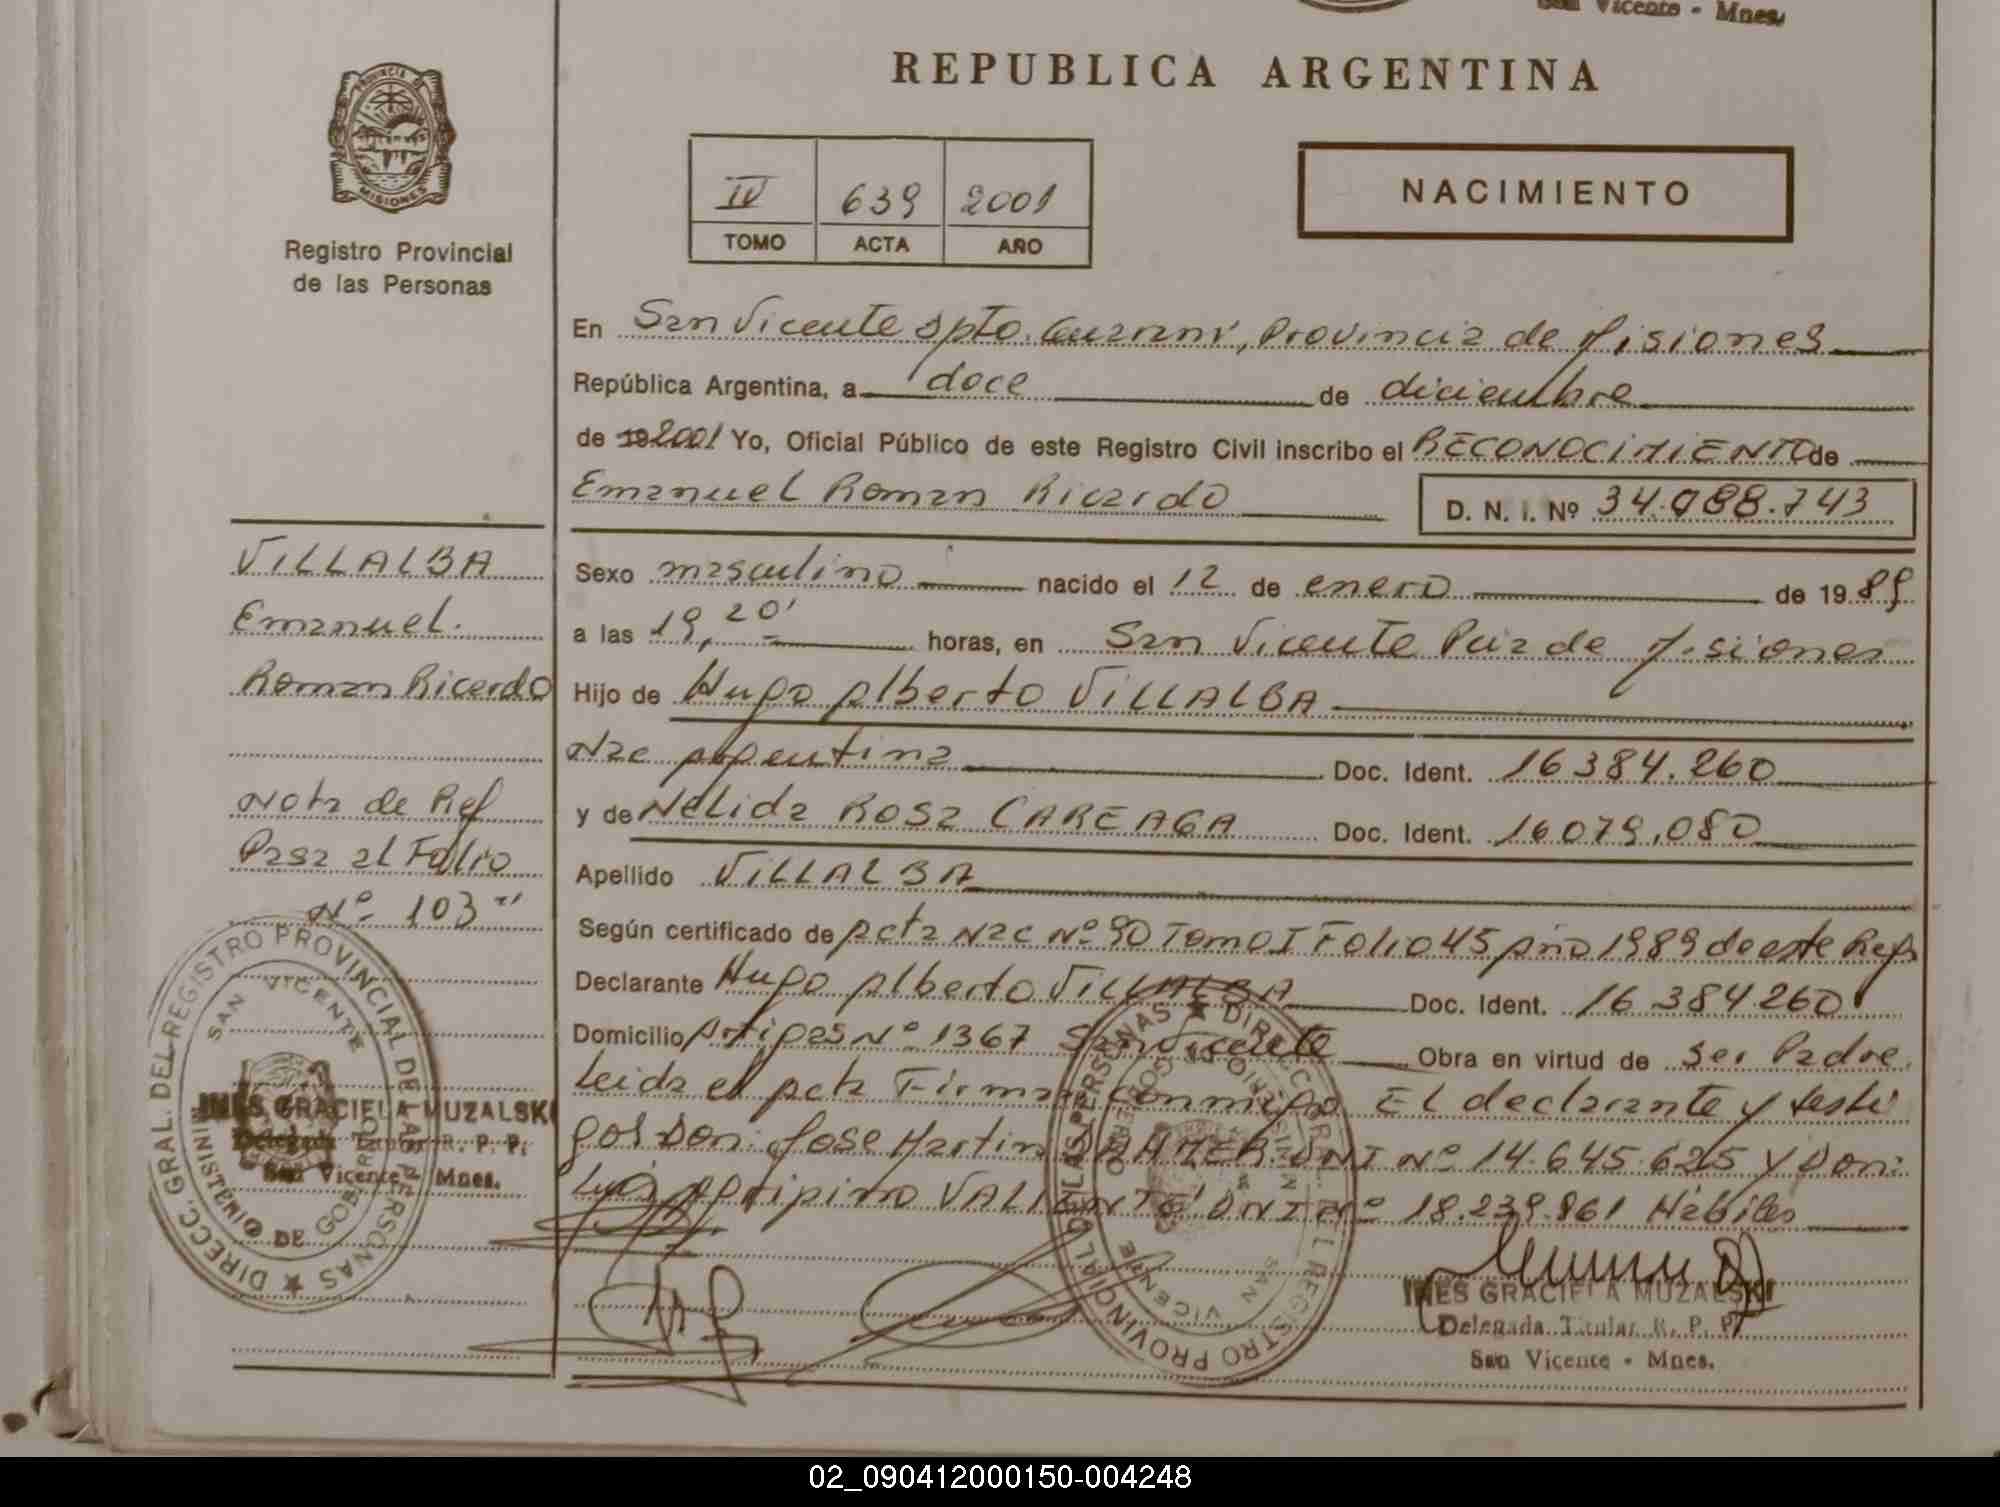 San Vicente - Mnes.
REPUBLICA ARGENTINA
PROVINCIA DE
MISIONES
Registro Provincial
de las Personas
IV 639 2001
TOMO ACTA AÑO
NACIMIENTO
En San Vicente Dpto. Guaraní, Provincia de Misiones
República Argentina, a doce de diciembre
de 19 2001 Yo, Oficial Público de este Registro Civil inscribo el RECONOCIMIENTO de
Emanuel Roman Ricardo D. N. I. Nº 34.088.743
VILLALBA
Emanuel.
Roman Ricardo
Nota de Ref
Pasa al Folio
Nº 103
Sexo masculino nacido el 12 de enero de 1989
a las 19,20' horas, en San Vicente Pcia de Misiones
Hijo de Hugo Alberto VILLALBA
Nac Argentina Doc. Ident. 16384.260
y de Nelida Rosa CAREAGA Doc. Ident. 16079.080
Apellido VILLALBA
Según certificado de Acta Nac Nº 90 Tomo I Folio 45 Año 1989 de este Reg
Declarante Hugo Alberto VILLALBA Doc. Ident. 16384260
Domicilio Artigas Nº 1367 San Vicente Obra en virtud de Ser Padre.
Leida el Acta Firman conmigo El declarante y testi
gos Don: Jose Martin DNI Nº 14.645.625 Y Don:
Luis Agripino VALIENTE DNI Nº 18.239.861 Hábiles
DIRECC. GRAL. DEL REGISTRO PROVINCIAL DE LAS PERSONAS
SAN VICENTE
MINISTERIO DE GOBIERNO
INES GRACIELA MUZALSKI
Delegada Titular R. P. P.
San Vicente - Mnes.
DIRECC. GRAL. DEL REGISTRO PROVINCIAL DE LAS PERSONAS
MINISTERIO DE GOBIERNO
SAN VICENTE
INES GRACIELA MUZALSKI
Delegada Titular R. P. P.
San Vicente - Mnes.
02_090412000150-004248